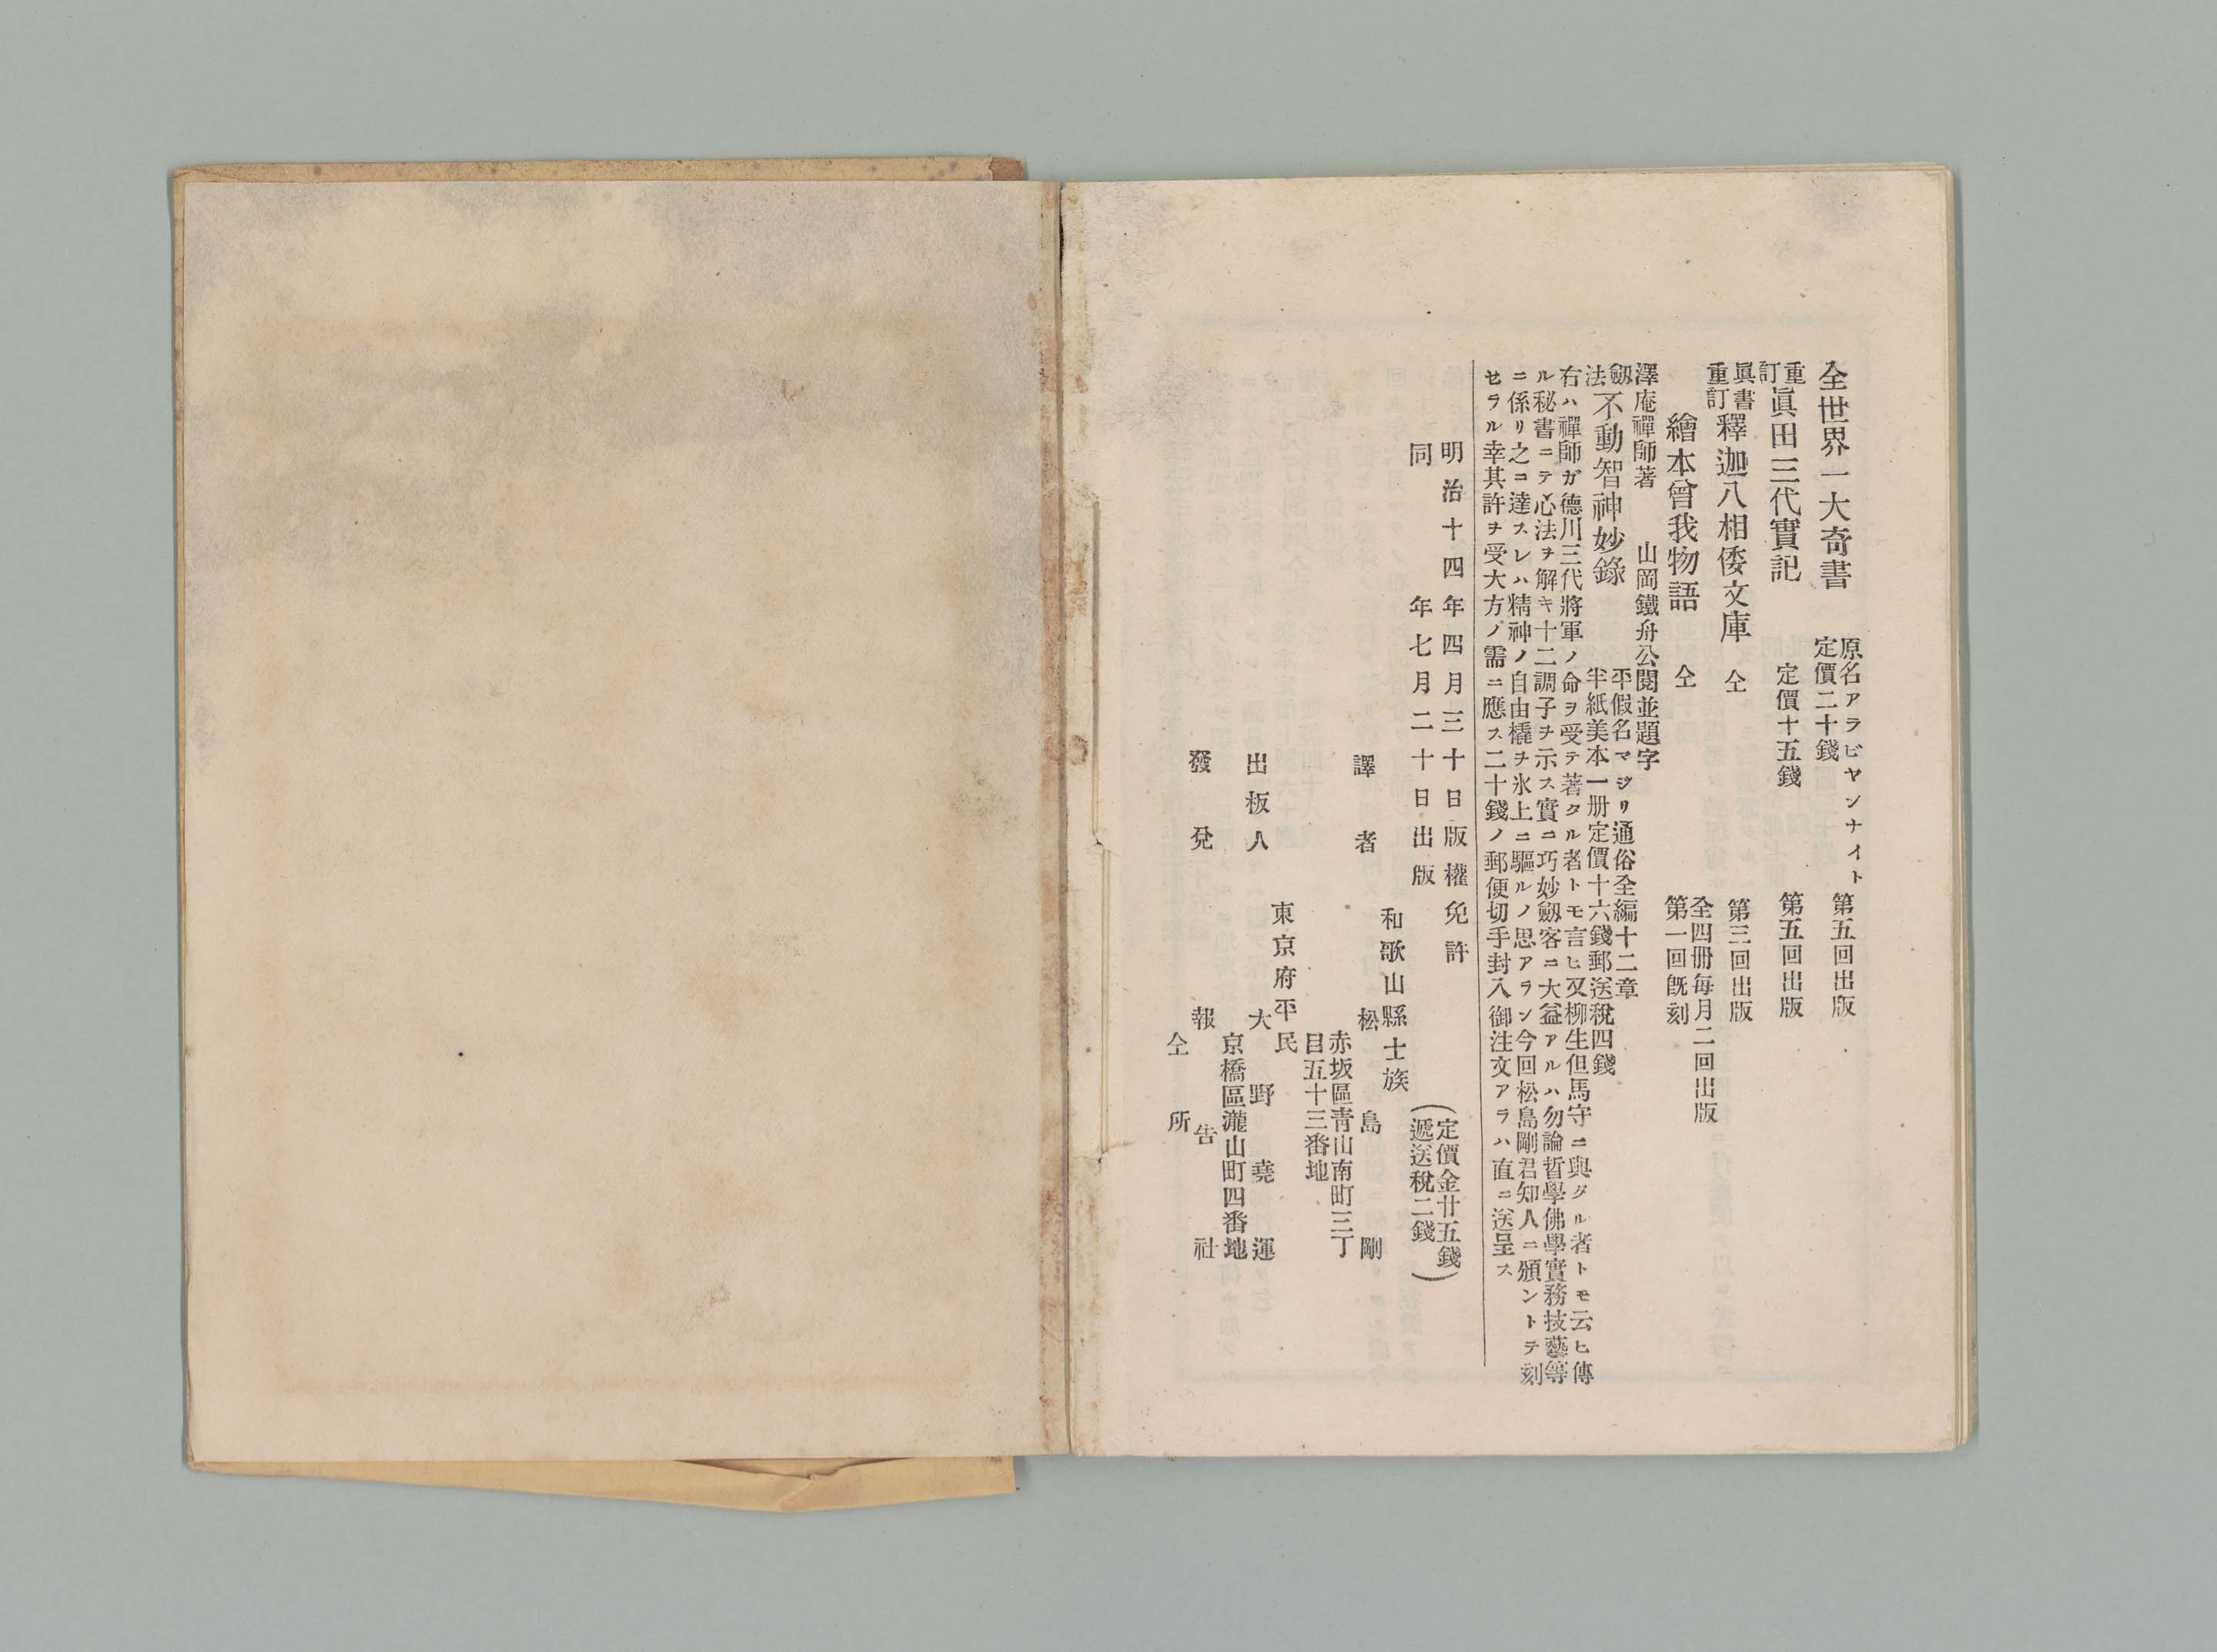 全世界一大奇書　原名アラビヤンナイト　定價二十錢　第五回出版
重訂眞田三代實記　定價十五錢　第五回出版
眞書重訂釋迦八相倭文庫　仝　第三回出版
繪本曾我物語　仝　全四冊每月二回出版　第一回既刻
澤庵禪師著　山岡鐵舟公閱並題字
劔法不動智神妙錄　平假名マジリ通俗全編十二章　半紙美本一册定價十六錢郵送稅四錢
右ハ禪師ガ德川三代將軍ノ命ヲ受テ著タル者トモ言ヒ又柳生但馬守ニ與ヘタル者トモ云ヒ傳
ル秘書ニテ心法ヲ解キ十二調子ヲ示ス實ニ巧妙劔客ニ大益アルハ勿論哲學佛學實務技藝等
ニ係リ之ニ達スレハ精神ノ自由橇ヲ氷上ニ驅ルノ思アラン今回松島剛君知人ニ頒ントテ刻
セラル幸其許ヲ受大方ノ需ニ應ス二十錢ノ郵便切手封入御注文アラハ直ニ送呈ス
明治十四年四月三十日版權免許
同年七月二十日出版
（定價金廿五錢）
（遞送稅二錢）
和歌山縣士族
譯者　松島剛
赤坂區靑山南町三丁
目五十三番地
東京府平民
出板人　大野堯運
京橋區瀧山町四番地
發兌　報告社
仝所